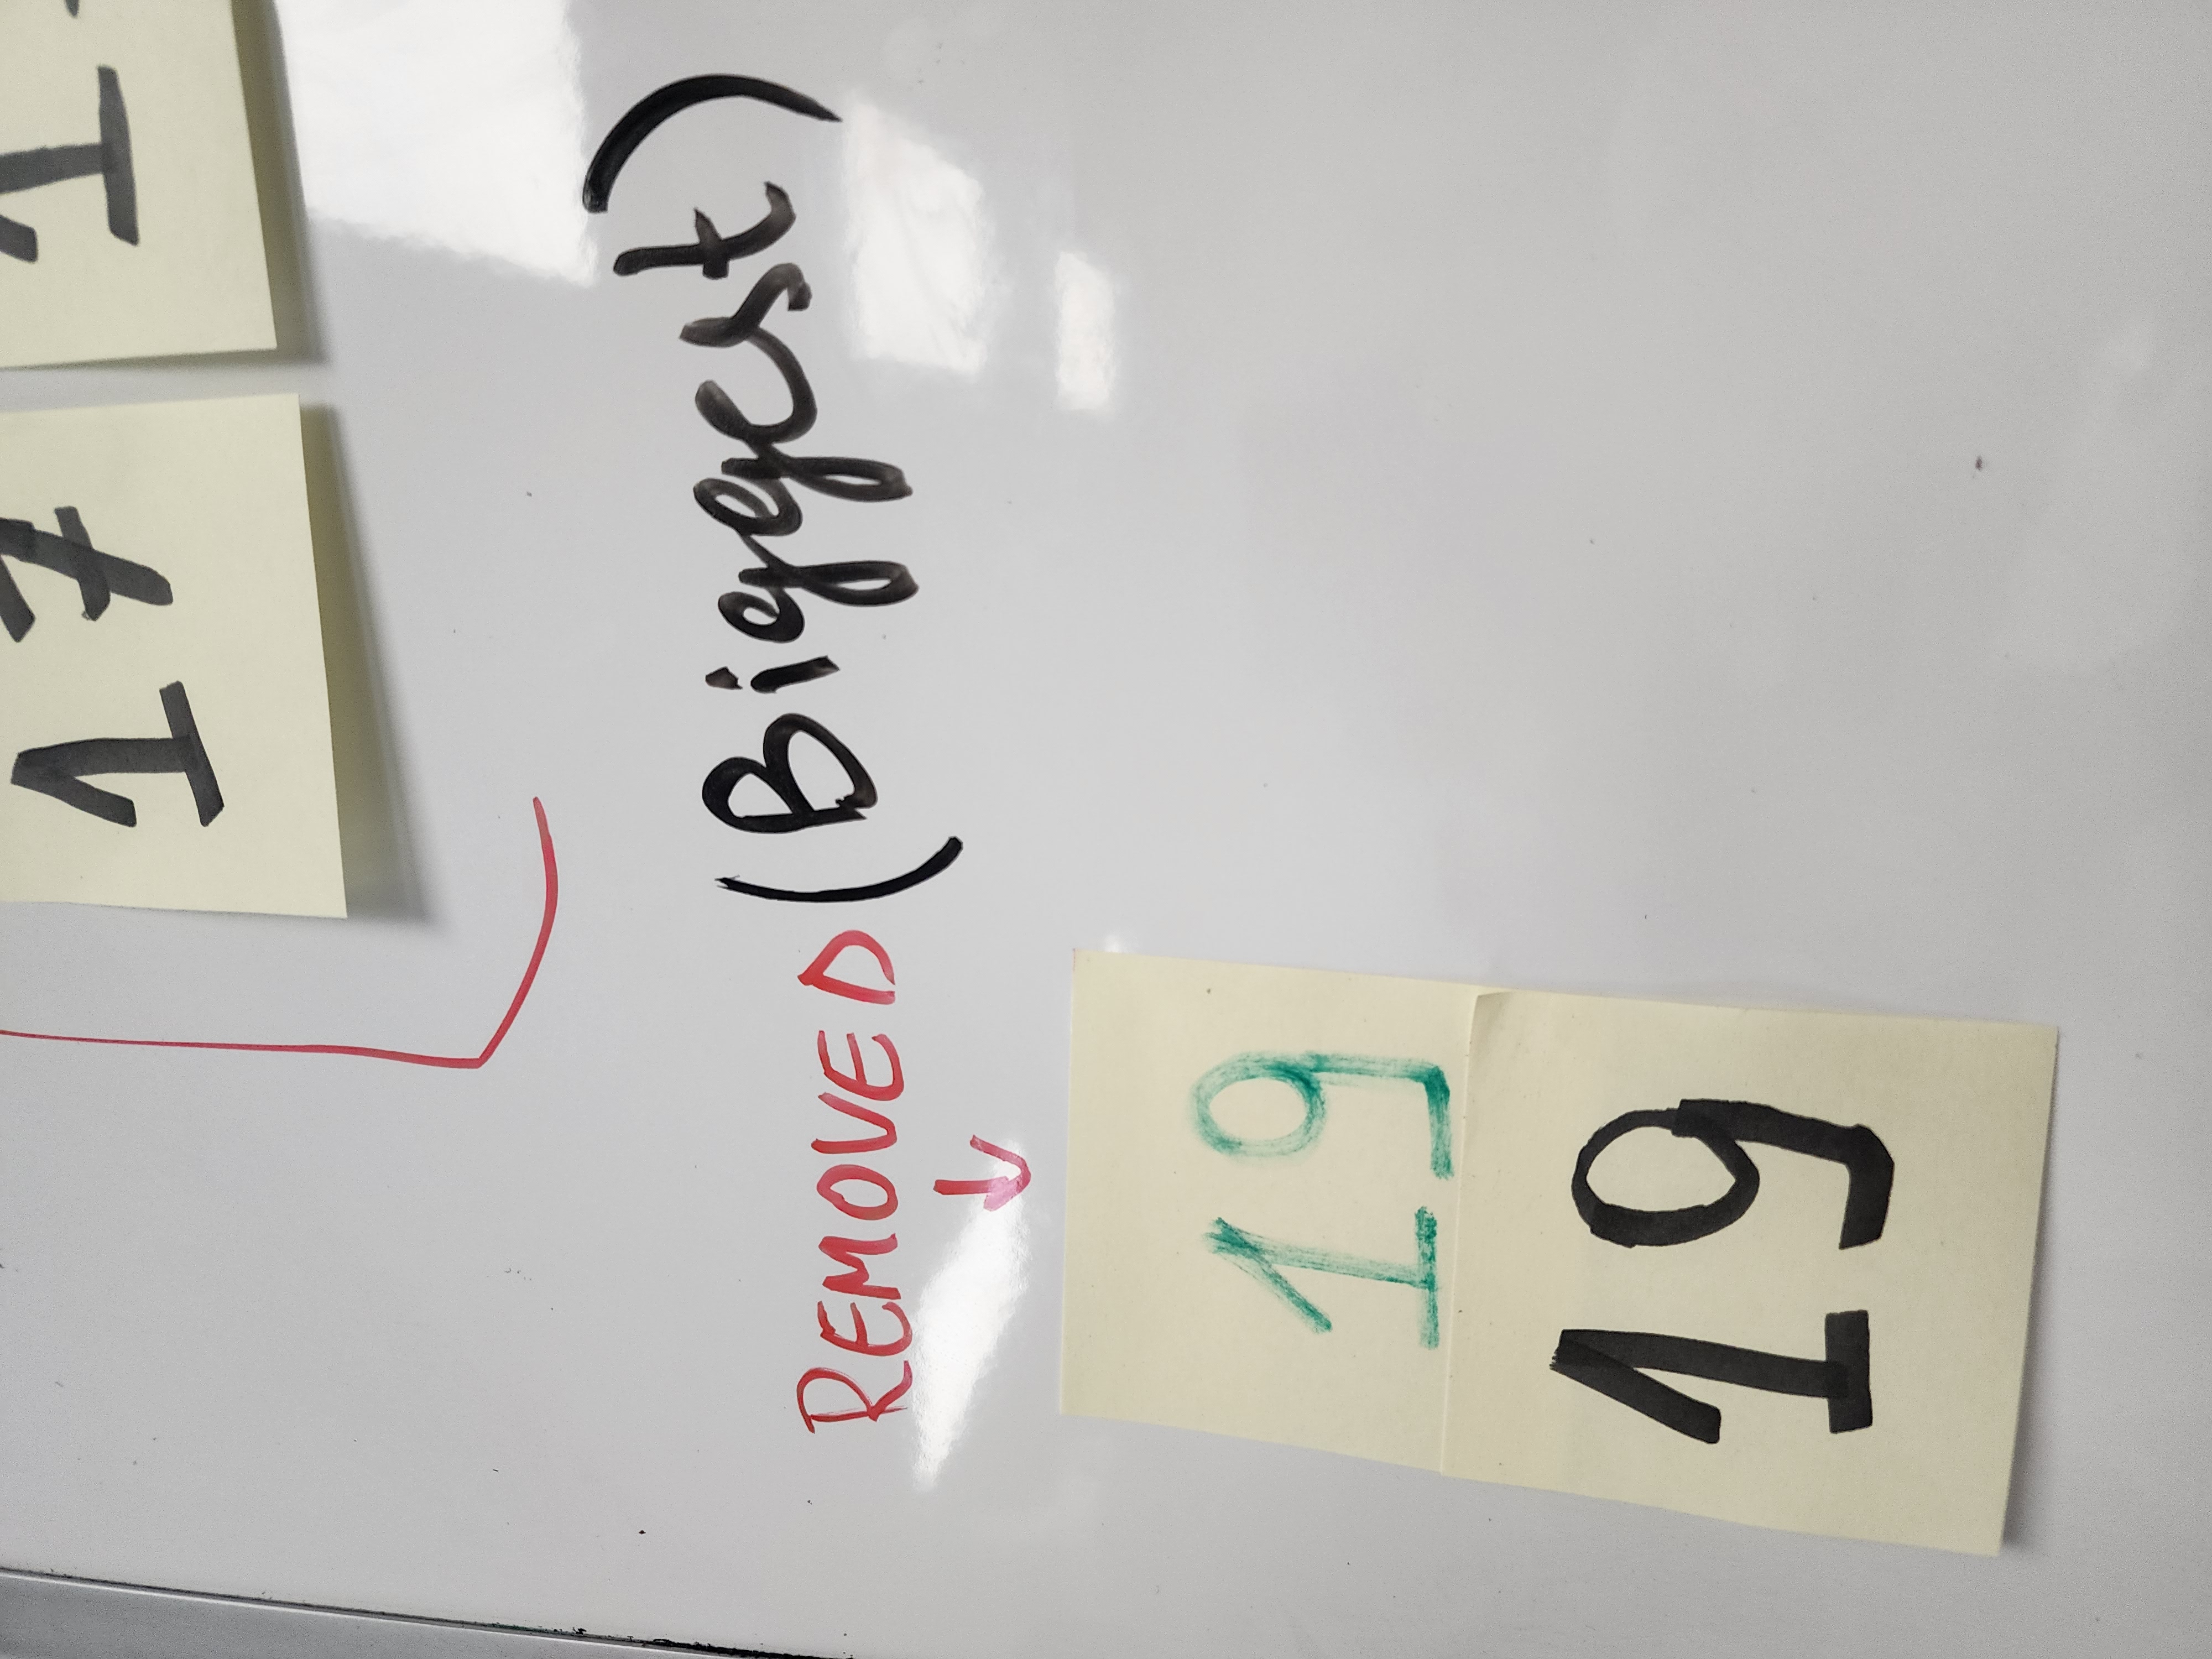 17 1
REMOVED (Biggest)
↓
19
19